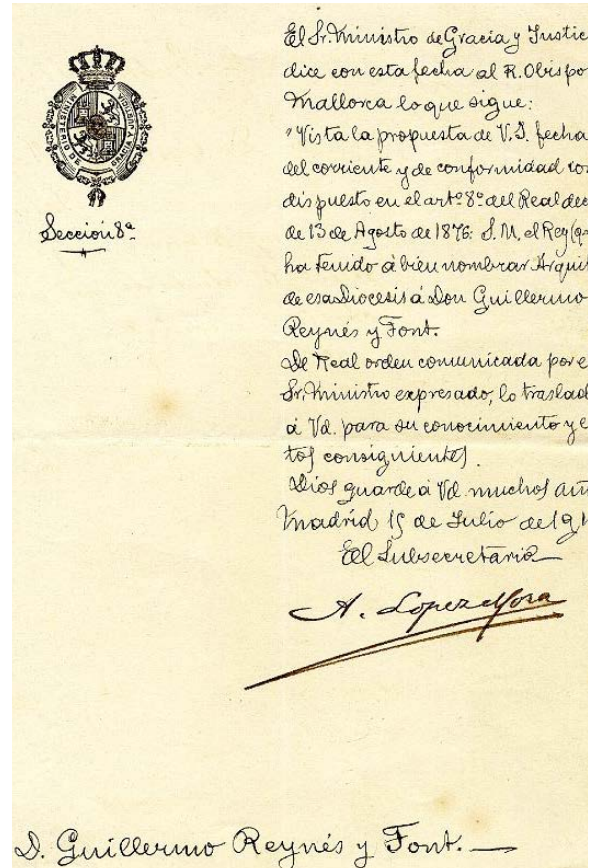 MINISTERIO DE GRACIA Y JUSTICIA
Sección 8ª
El Sr. Ministro de Gracia y Justic
dice con esta fecha al R. Obispo
Mallorca lo que sigue:
"Vista la propuesta de V.I. fecha
del corriente y de conformidad co
dispuesto en el artº 8º del Real dec
de 13 de Agosto de 1876: S. M. el Rey (q
ha tenido á bien nombrar Arquit
de esa Diocesis á Don Guillermo
Reynés y Font.
De Real orden comunicada por e
Sr. Ministro expresado, lo traslad
á Vd. para su conocimiento y e
tos consiguientes.
Dios guarde á Vd. muchos añ
Madrid 15 de Julio de 191
El Subsecretario
A. Lopez Mora
D. Guillermo Reynés y Font.